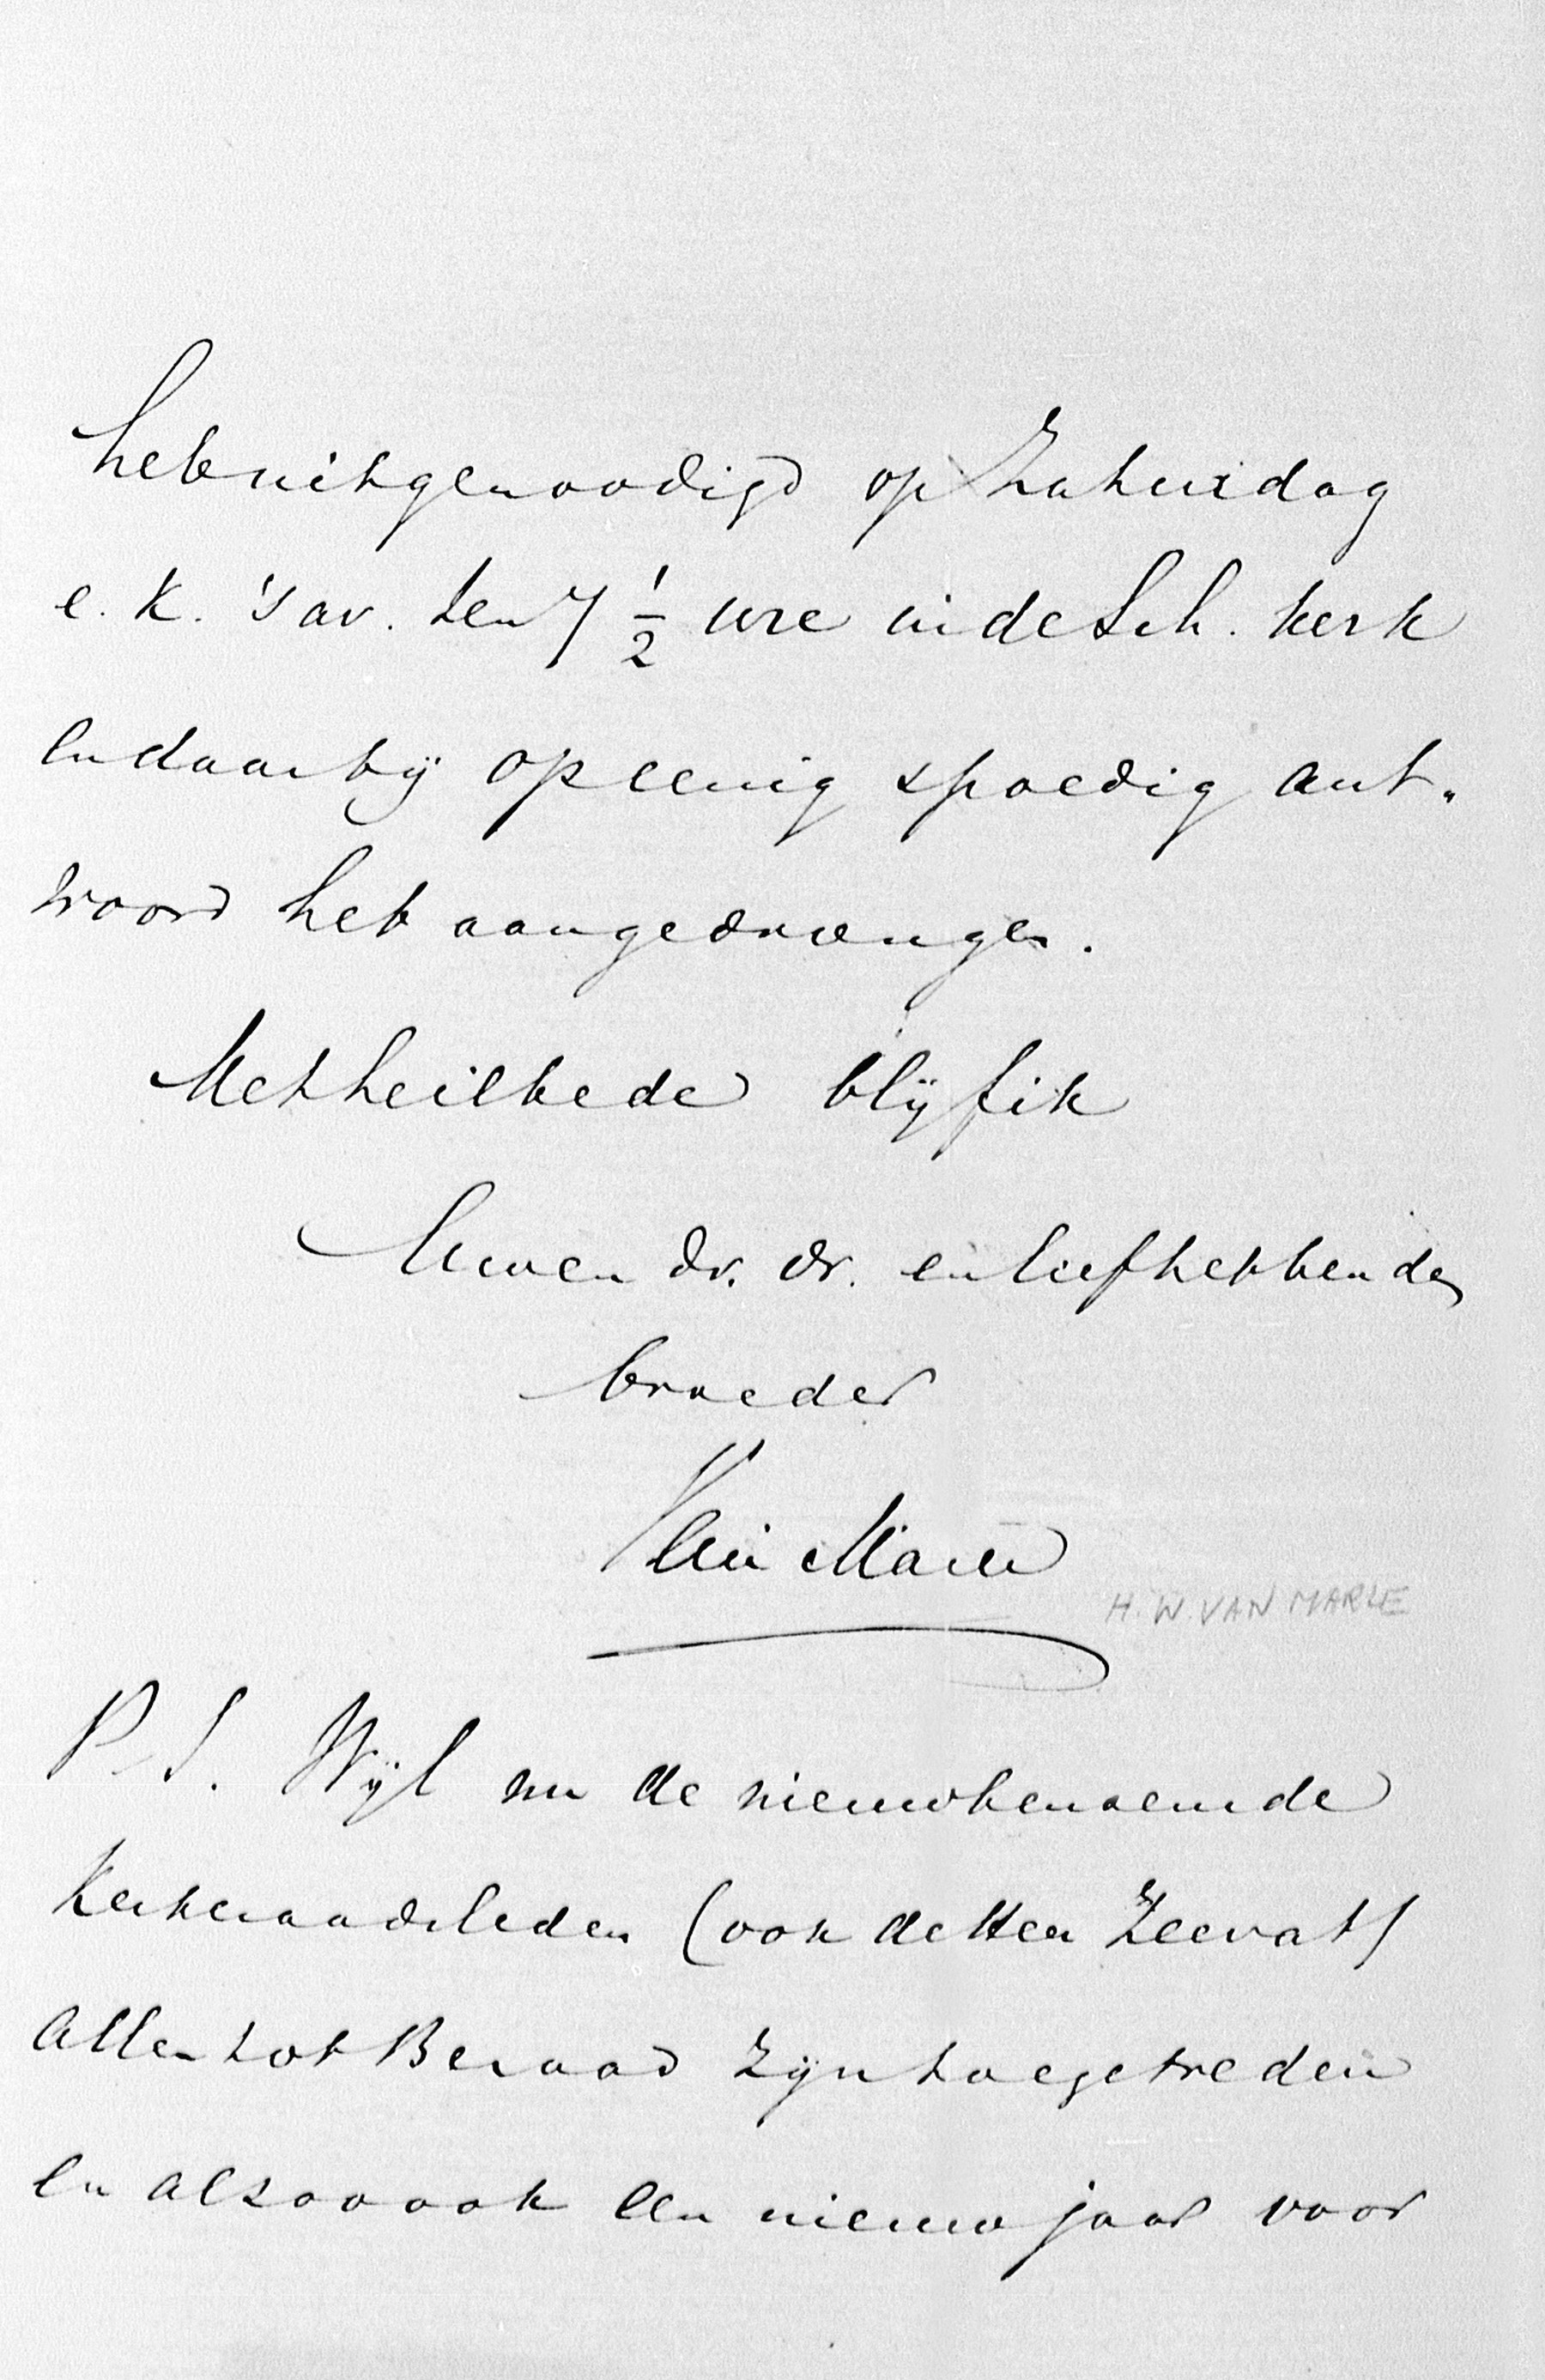 heb uitgenoodigd op Zaturdag
e. k. 's av. ten 7 1/2 ure in de Sch. kerk
en daarbij op eenig spoedig ant-
woord heb aangedrongen.
Met heilbede blijf ik
Uwen dv. dr. en liefhebbenden
broeder
Van Marle
H. W. VAN MARLE
P. S. Wijl nu de nieuwbenoemde
Kerkeraadsleden (ook de Heer Zeevat)
allen tot Beraad zijn toegetreden
en alzoo ook een nieuw jaar voor